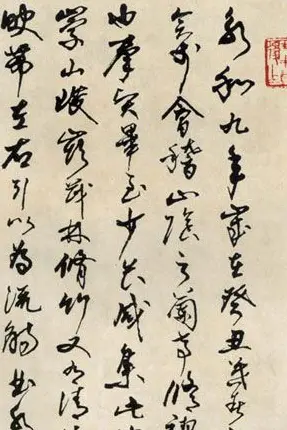 永和九年歲在癸丑暮春
會于會稽山陰之蘭亭脩禊
也羣賢畢至少長咸集此地
崇山峻嶺茂林脩竹又有清
映帶左右引以為流觴曲水